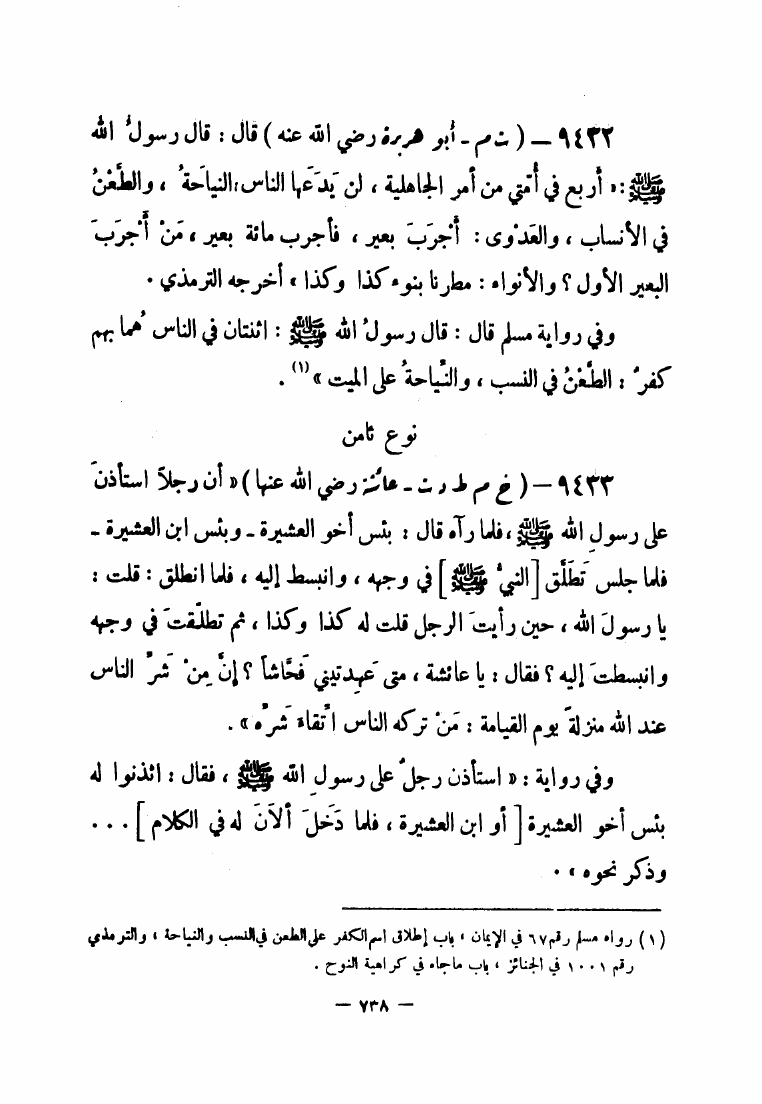 ٩٤٣٢ – ( ت م - أبو هريرة رضي الله عنه ) قال : قال رسولُ الله
ﷺ : « أربع في أُمَّتي من أمر الجاهلية ، لن يَدَعَها الناس : النياحَةُ ، والطَّعْنُ
في الأنساب ، والعَدْوَى : أَجْرَبَ بعير ، فأجرب مائة بعير ، مَنْ أَجْرَبَ
البعير الأول ؟ والأنواء : مطرنا بنوء كذا وكذا » أخرجه الترمذي .
وفي رواية مسلم قال : قال رسولُ الله ﷺ : اثنتان في الناس هُما بهم
كفرٌ : الطَّعْنُ في النسب ، والنِّياحةُ على الميت » (١) .
نوع ثامن
٩٤٣٣ – ( خ م ط د ت - عائشة رضي الله عنها ) « أن رجلاً استأذنَ
على رسولِ الله ﷺ ، فلما رآه قال : بئس أخو العشيرة - وبئس ابن العشيرة -
فلما جلس تَطَلَّق [ النبيُّ ﷺ ] في وجهه ، وانبسط إليه ، فلما انطلق : قلت :
يا رسولَ الله ، حين رأيتَ الرجل قلت له كذا وكذا ، ثم تطلّقتَ في وجهه
وانبسطتَ إليه ؟ فقال : يا عائشة ، متى عَهِدتيني فَحَّاشاً ؟ إنَّ مِنْ شَرِّ الناس
عند الله منزلةً يوم القيامة : مَنْ تركه الناس اتِّقاءَ شَرِّه » .
وفي رواية : « استأذن رجلٌ على رسولِ الله ﷺ ، فقال : ائذنوا له
بئس أخو العشيرة [ أو ابن العشيرة ، فلما دَخَلَ ألاَنَ له في الكلام ] ...
وذكر نحوه » .
(١) رواه مسلم رقم ٦٧ في الإيمان ، باب إطلاق اسم الكفر على الطعن في النسب والنياحة ، والترمذي
رقم ١٠٠١ في الجنائز ، باب ماجاء في كراهية النوح .
– ٧٣٨ –